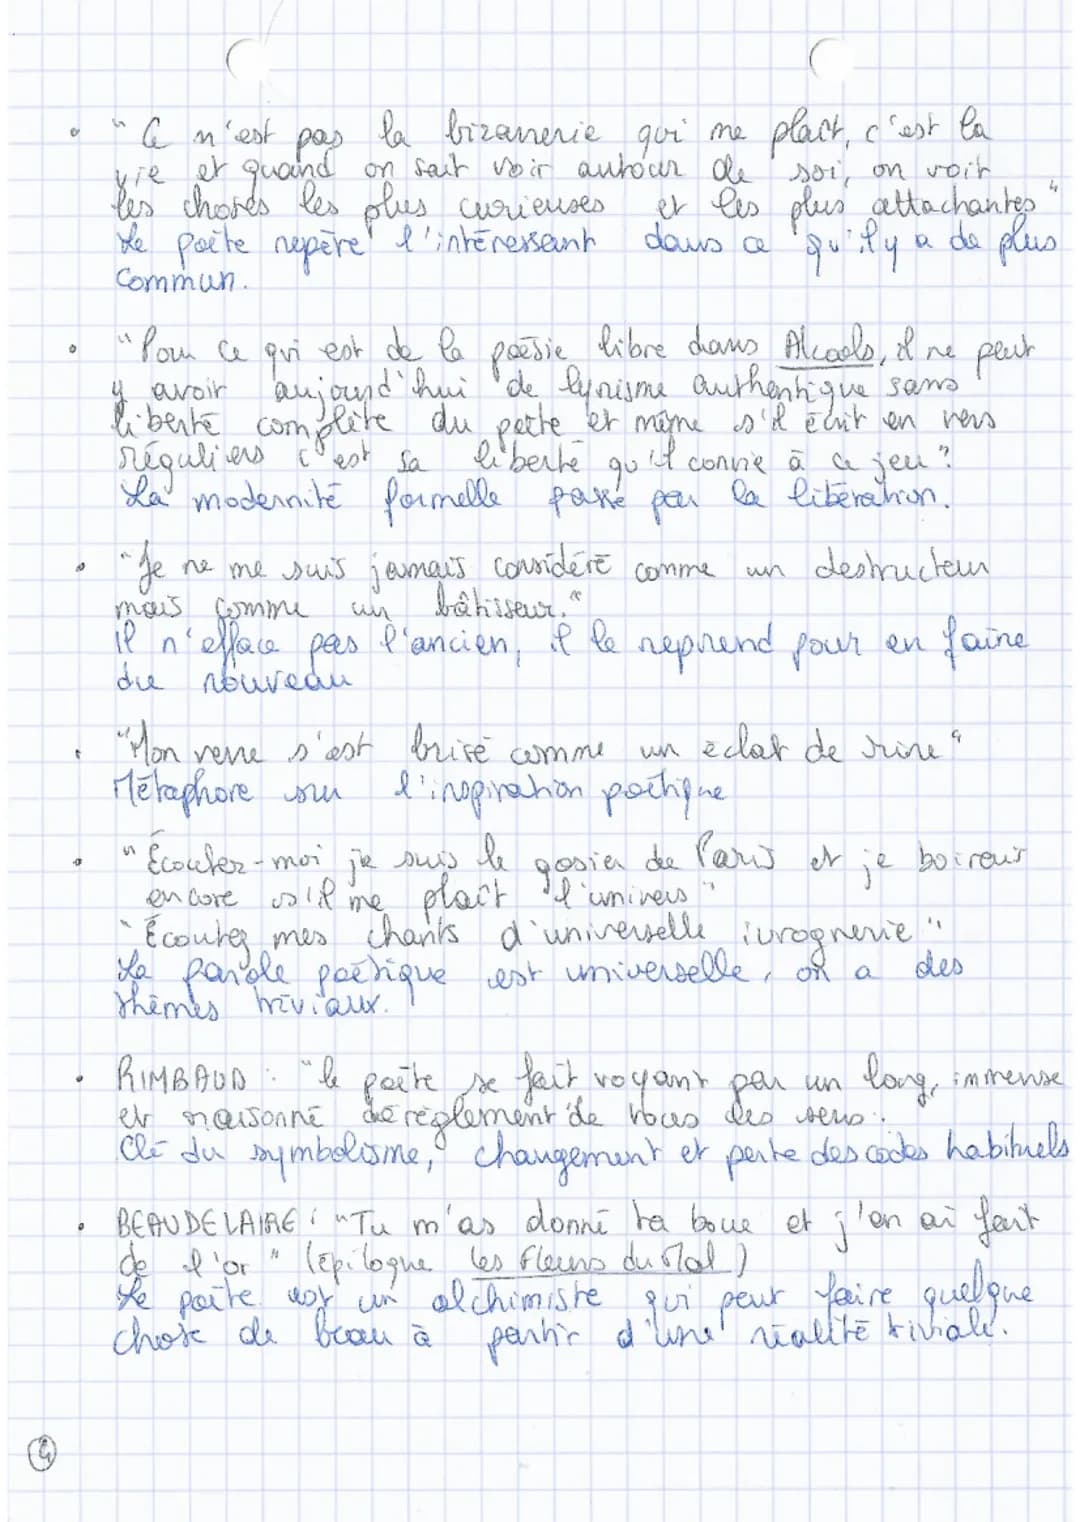 • "Ce n'est pas la bizarrerie qui me plaît, c'est la
vie et quand on sait voir autour de soi, on voit
les choses les plus curieuses et les plus attachantes"
Le poète repère l'intéressant dans ce qu'il y a de plus
commun.
• "Pour ce qui est de la poésie libre dans Alcools, il ne peut
y avoir aujourd'hui de lyrisme authentique sans
liberté complète du poète et même s'il écrit en vers
réguliers c'est sa liberté qu'il convie à ce jeu"
La modernité formelle passe par la libération.
• "Je ne me suis jamais considéré comme un destructeur
mais comme un bâtisseur."
Il n'efface pas l'ancien, il le reprend pour en faire
du nouveau
• "Mon verre s'est brisé comme un éclat de rire"
Métaphore sur l'inspiration poétique
• "Écoutez-moi je suis le gosier de Paris et je boirais
encore s'il me plaît l'univers"
"Écoutez mes chants d'universelle ivrognerie"
La parole poétique est universelle, on a des
thèmes triviaux.
• RIMBAUD : "le poète se fait voyant par un long, immense
et raisonné dérèglement de tous les sens".
Clé du symbolisme, changement et perte des codes habituels
• BEAUDELAIRE : "Tu m'as donné ta boue et j'en ai fait
de l'or" (Épilogue Les Fleurs du Mal)
Le poète est un alchimiste qui peut faire quelque
chose de beau à partir d'une réalité triviale.
④